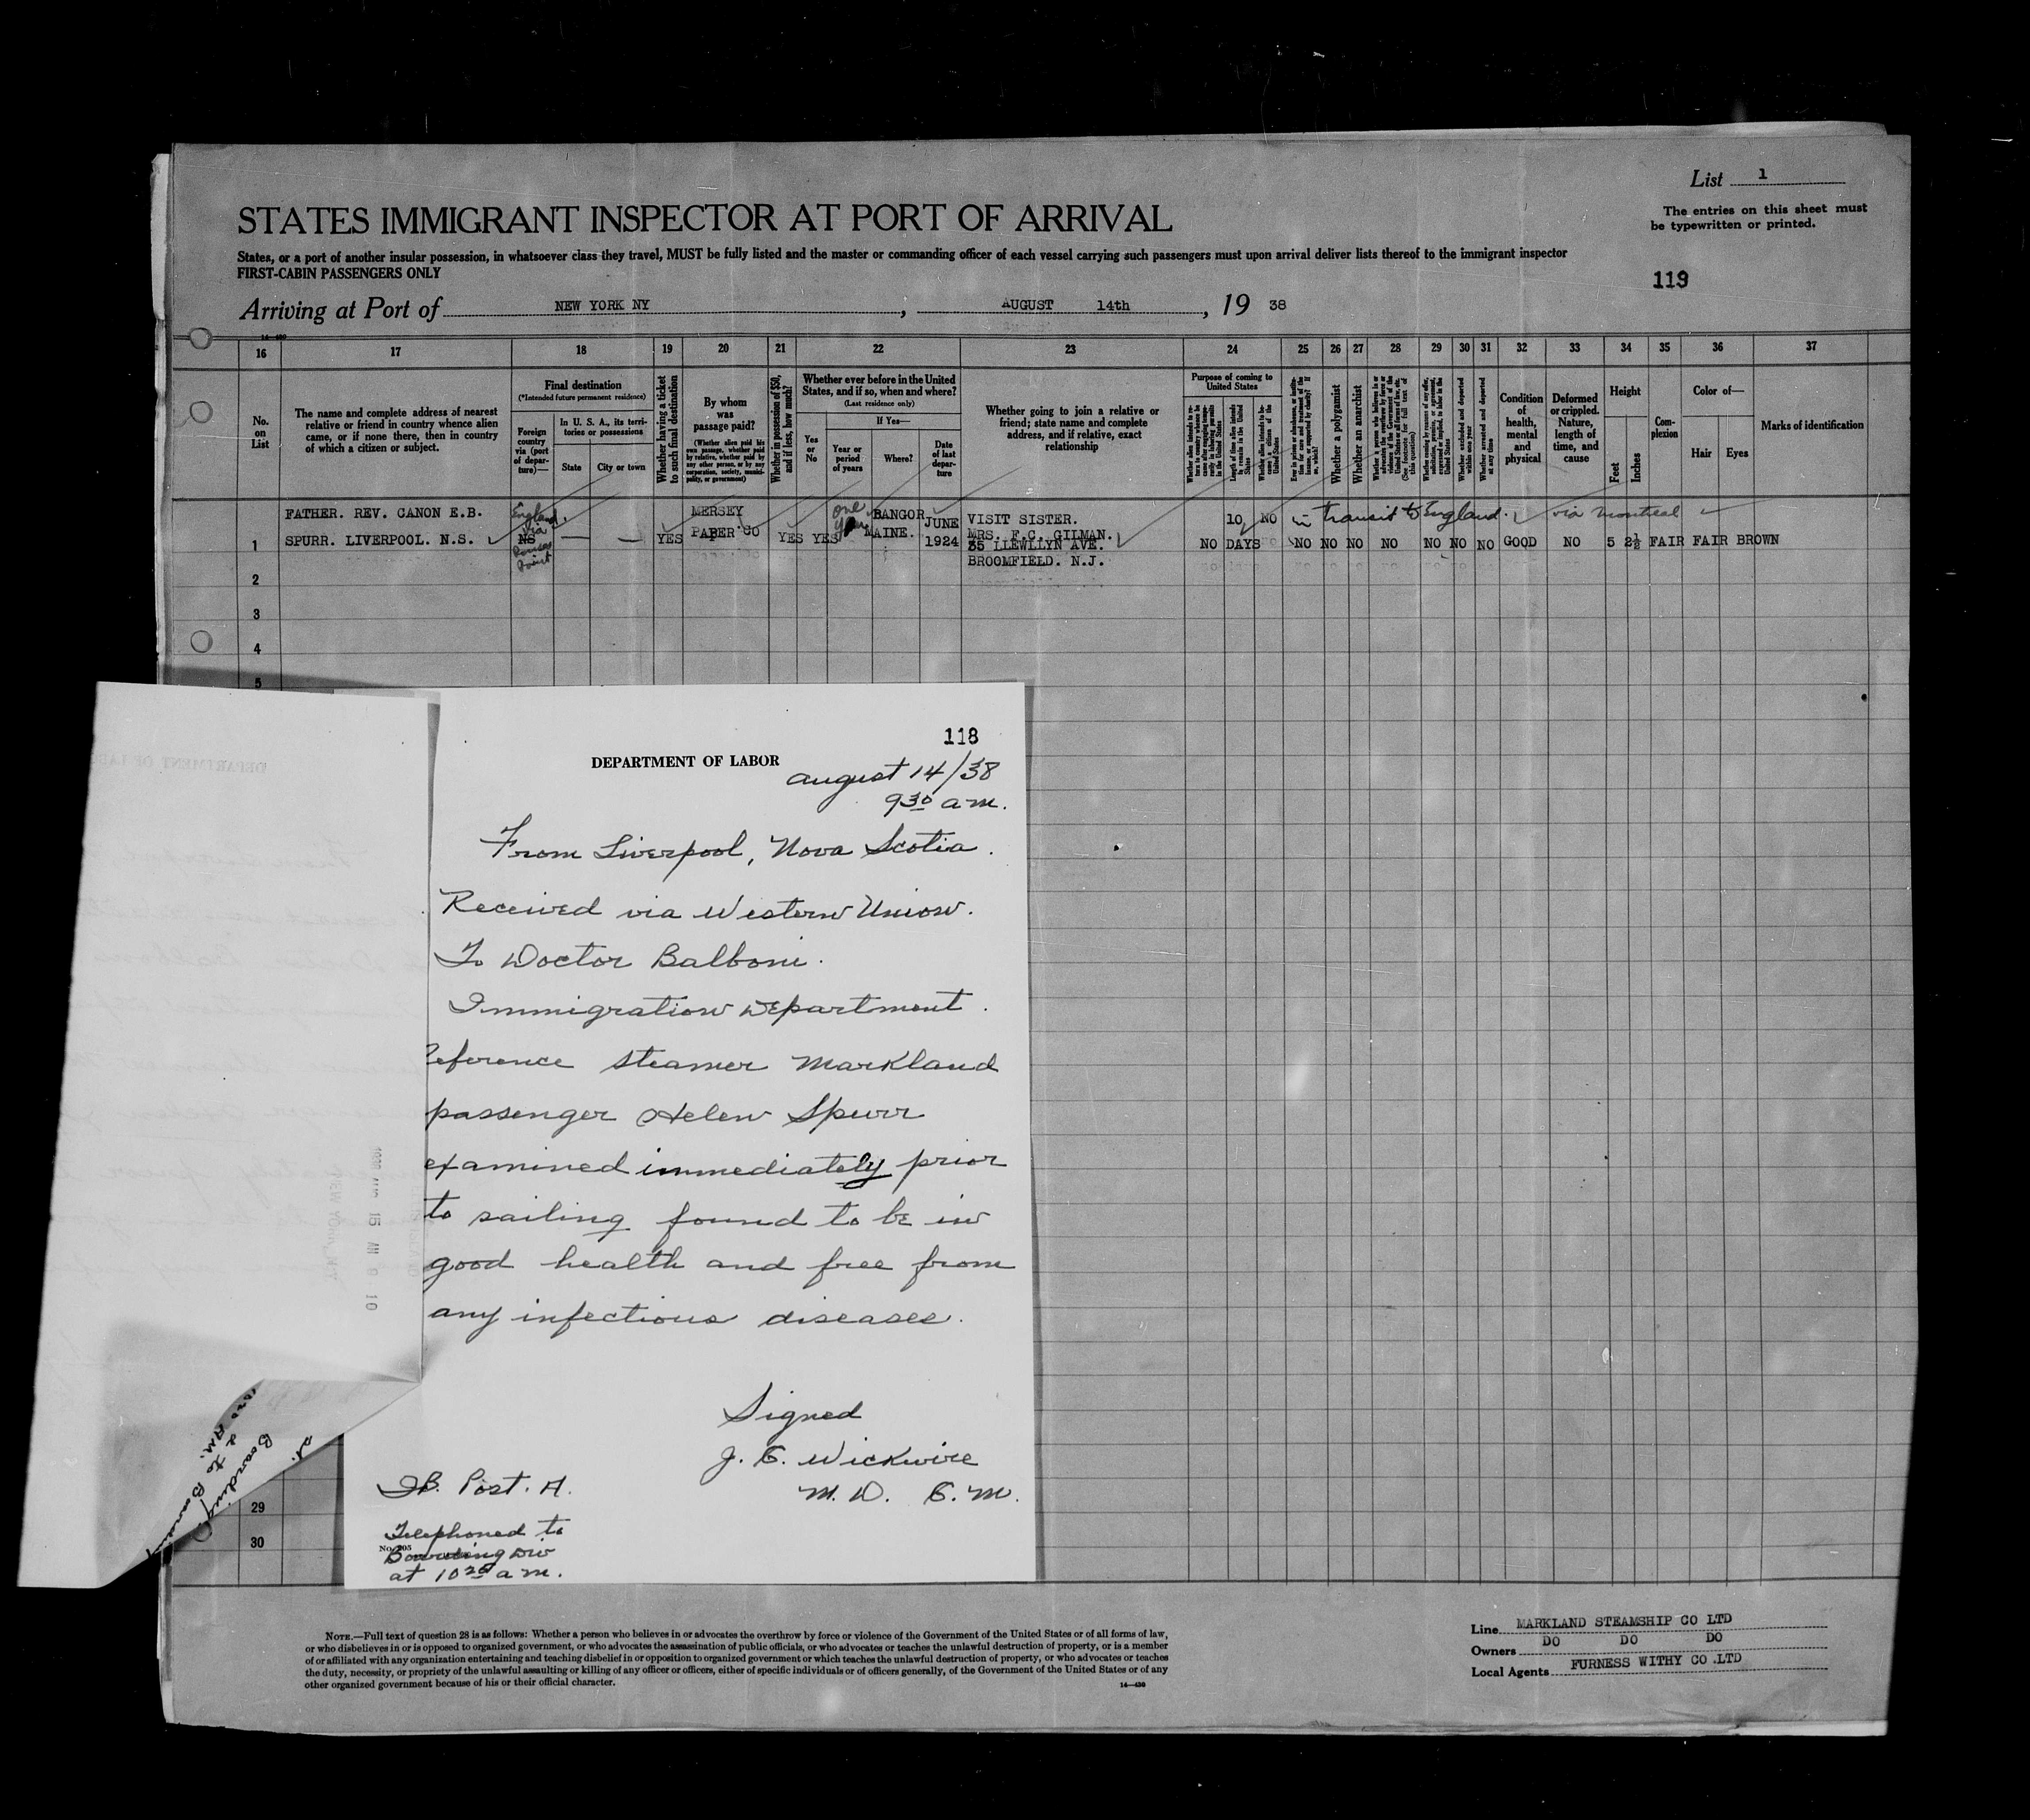 List 1
The entries on this sheet must
be typewritten or printed.
STATES IMMIGRANT INSPECTOR AT PORT OF ARRIVAL
States, or a port of another insular possession, in whatsoever class they travel, MUST be fully listed and the master or commanding officer of each vessel carrying such passengers must upon arrival deliver lists thereof to the immigrant inspector
FIRST-CABIN PASSENGERS ONLY
119
Arriving at Port of NEW YORK NY, AUGUST 14th, 19 38
16 17 18 19 20 21 22 23 24 25 26 27 28 29 30 31 32 33 34 35 36 37
No.
on
List
The name and complete address of nearest
relative or friend in country whence alien
came, or if none there, then in country
of which a citizen or subject.
Final destination
(*Intended future permanent residence)
Foreign
country
via (port
of depar-
ture)—
In U. S. A., its terri-
tories or possessions
State
City or town
Whether having a ticket
to such final destination
By whom
was
passage paid?
(Whether alien paid his
own passage, whether paid
by relative, whether paid by
any other person, or by any
corporation, society, munici-
pality, or government)
Whether in possession of $50,
and if less, how much?
Whether ever before in the United
States, and if so, when and where?
(Last residence only)
Yes
or
No
If Yes—
Year or
period
of years
Where?
Date
of last
depar-
ture
Whether going to join a relative or
friend; state name and complete
address, and if relative, exact
relationship
Purpose of coming to
United States
Whether a polygamist
Whether an anarchist
Condition
of
health,
mental
and
physical
Deformed
or crippled.
Nature,
length of
time, and
cause
Height
Feet
Inches
Com-
plexion
Color of—
Hair
Eyes
Marks of identification
FATHER. REV. CANON E.B. England. MERSEY one BANGOR JUNE VISIT SISTER. 10 NO in transit to England. via Montreal
1 SPURR. LIVERPOOL. N.S. via NS — — YES PAPER CO YES YES year MAINE. 1924 MRS. F.C. GILMAN. NO DAYS NO NO NO NO NO NO NO GOOD NO 5 2½ FAIR FAIR BROWN
35 LLEWLLYN AVE.
BROOMFIELD. N.J.
2
3
4
5
118
DEPARTMENT OF LABOR
August 14/38
9 30 a m.
From Liverpool, Nova Scotia.
Received via Western Union.
To Doctor Balboni.
Immigration Department.
Reference steamer Markland
passenger Helen Spurr
examined immediately prior
to sailing found to be in
good health and free from
any infectious diseases.
Signed
J. C. Wickwire
M. D. C. M.
Post. A.
Telephoned to
No. 205
Boarding Div
at 10 20 a m.
29
30
NOTE.—Full text of question 28 is as follows: Whether a person who believes in or advocates the overthrow by force or violence of the Government of the United States or of all forms of law,
or who disbelieves in or is opposed to organized government, or who advocates the assassination of public officials, or who advocates or teaches the unlawful destruction of property, or is a member
of or affiliated with any organization entertaining and teaching disbelief in or opposition to organized government or which teaches the unlawful destruction of property, or who advocates or teaches
the duty, necessity, or propriety of the unlawful assaulting or killing of any officer or officers, either of specific individuals or of officers generally, of the Government of the United States or of any
other organized government because of his or their official character.
14—430
Line MARKLAND STEAMSHIP CO LTD
Owners DO DO DO
Local Agents FURNESS WITHY CO .LTD